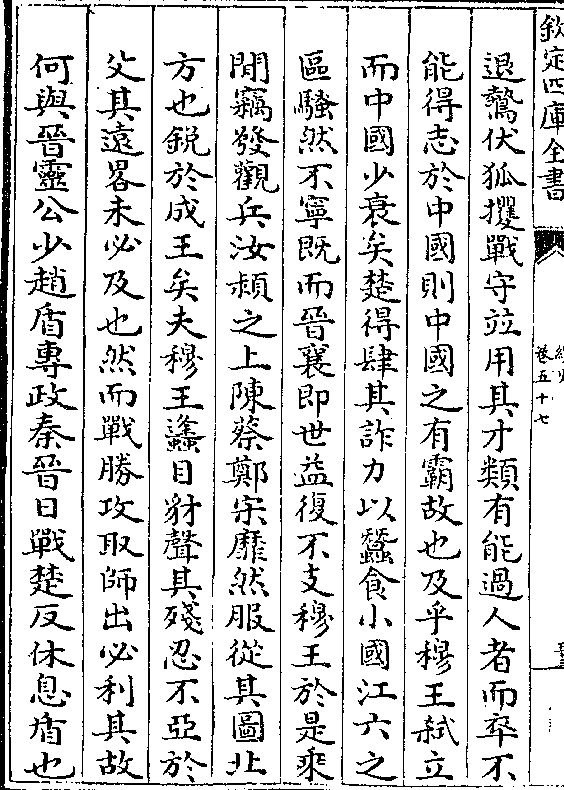 欽定四庫全書
卷五十七
退鷙伏狐攫戰守竝用其才類有能過人者而卒不
能得志於中國則中國之有霸故也及乎穆王弑立
而中國少衰矣楚得肆其詐力以蠶食小國江六之
區騷然不寧既而晉襄即世益復不支穆王於是乘
間竊發觀兵汝潁之上陳蔡鄭宋靡然服從其圖北
方也銳於成王矣夫穆王蠭目豺聲其殘忍不亞於
父其遠畧未必及也然而戰勝攻取師出必利其故
何與晉靈公少趙盾專政秦晉日戰楚反休息盾也